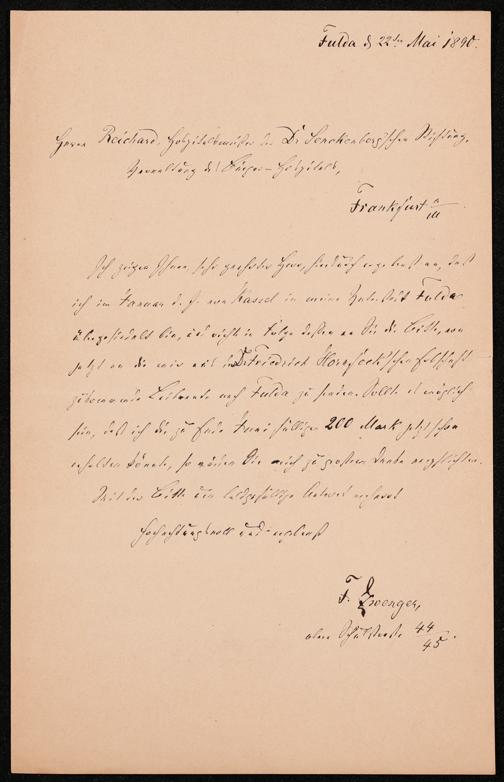 Fulda d. 22ten Mai 1890.
Herrn Reichard, Hospitalmeister der Dr Senckenberg'schen Stiftung,
Verwaltung des Bürger-Hospitals,
Frankfurt a/M
Ich zeige Ihnen, sehr geehrter Herr, hierdurch ergebenst an, daß
ich im Januar d. J. von Kassel in meine Vaterstadt Fulda
übergesiedelt bin, und richte in Folge dessen an Sie die Bitte, von
jetzt an die mir aus der Dr Friedrich 'schen Erbschaft
zukommende Leibrente nach Fulda zu senden. Sollte es möglich
sein, daß ich die zu Ende Juni fälligen 200 Mark jetzt schon
erhalten könnte, so würden Sie mich zu großem Danke verpflichten.
Mit der Bitte um baldgefällige Antwort
hochachtungsvoll und ergebenst
F. Zwenger,
obere Schulstraße 44
45.